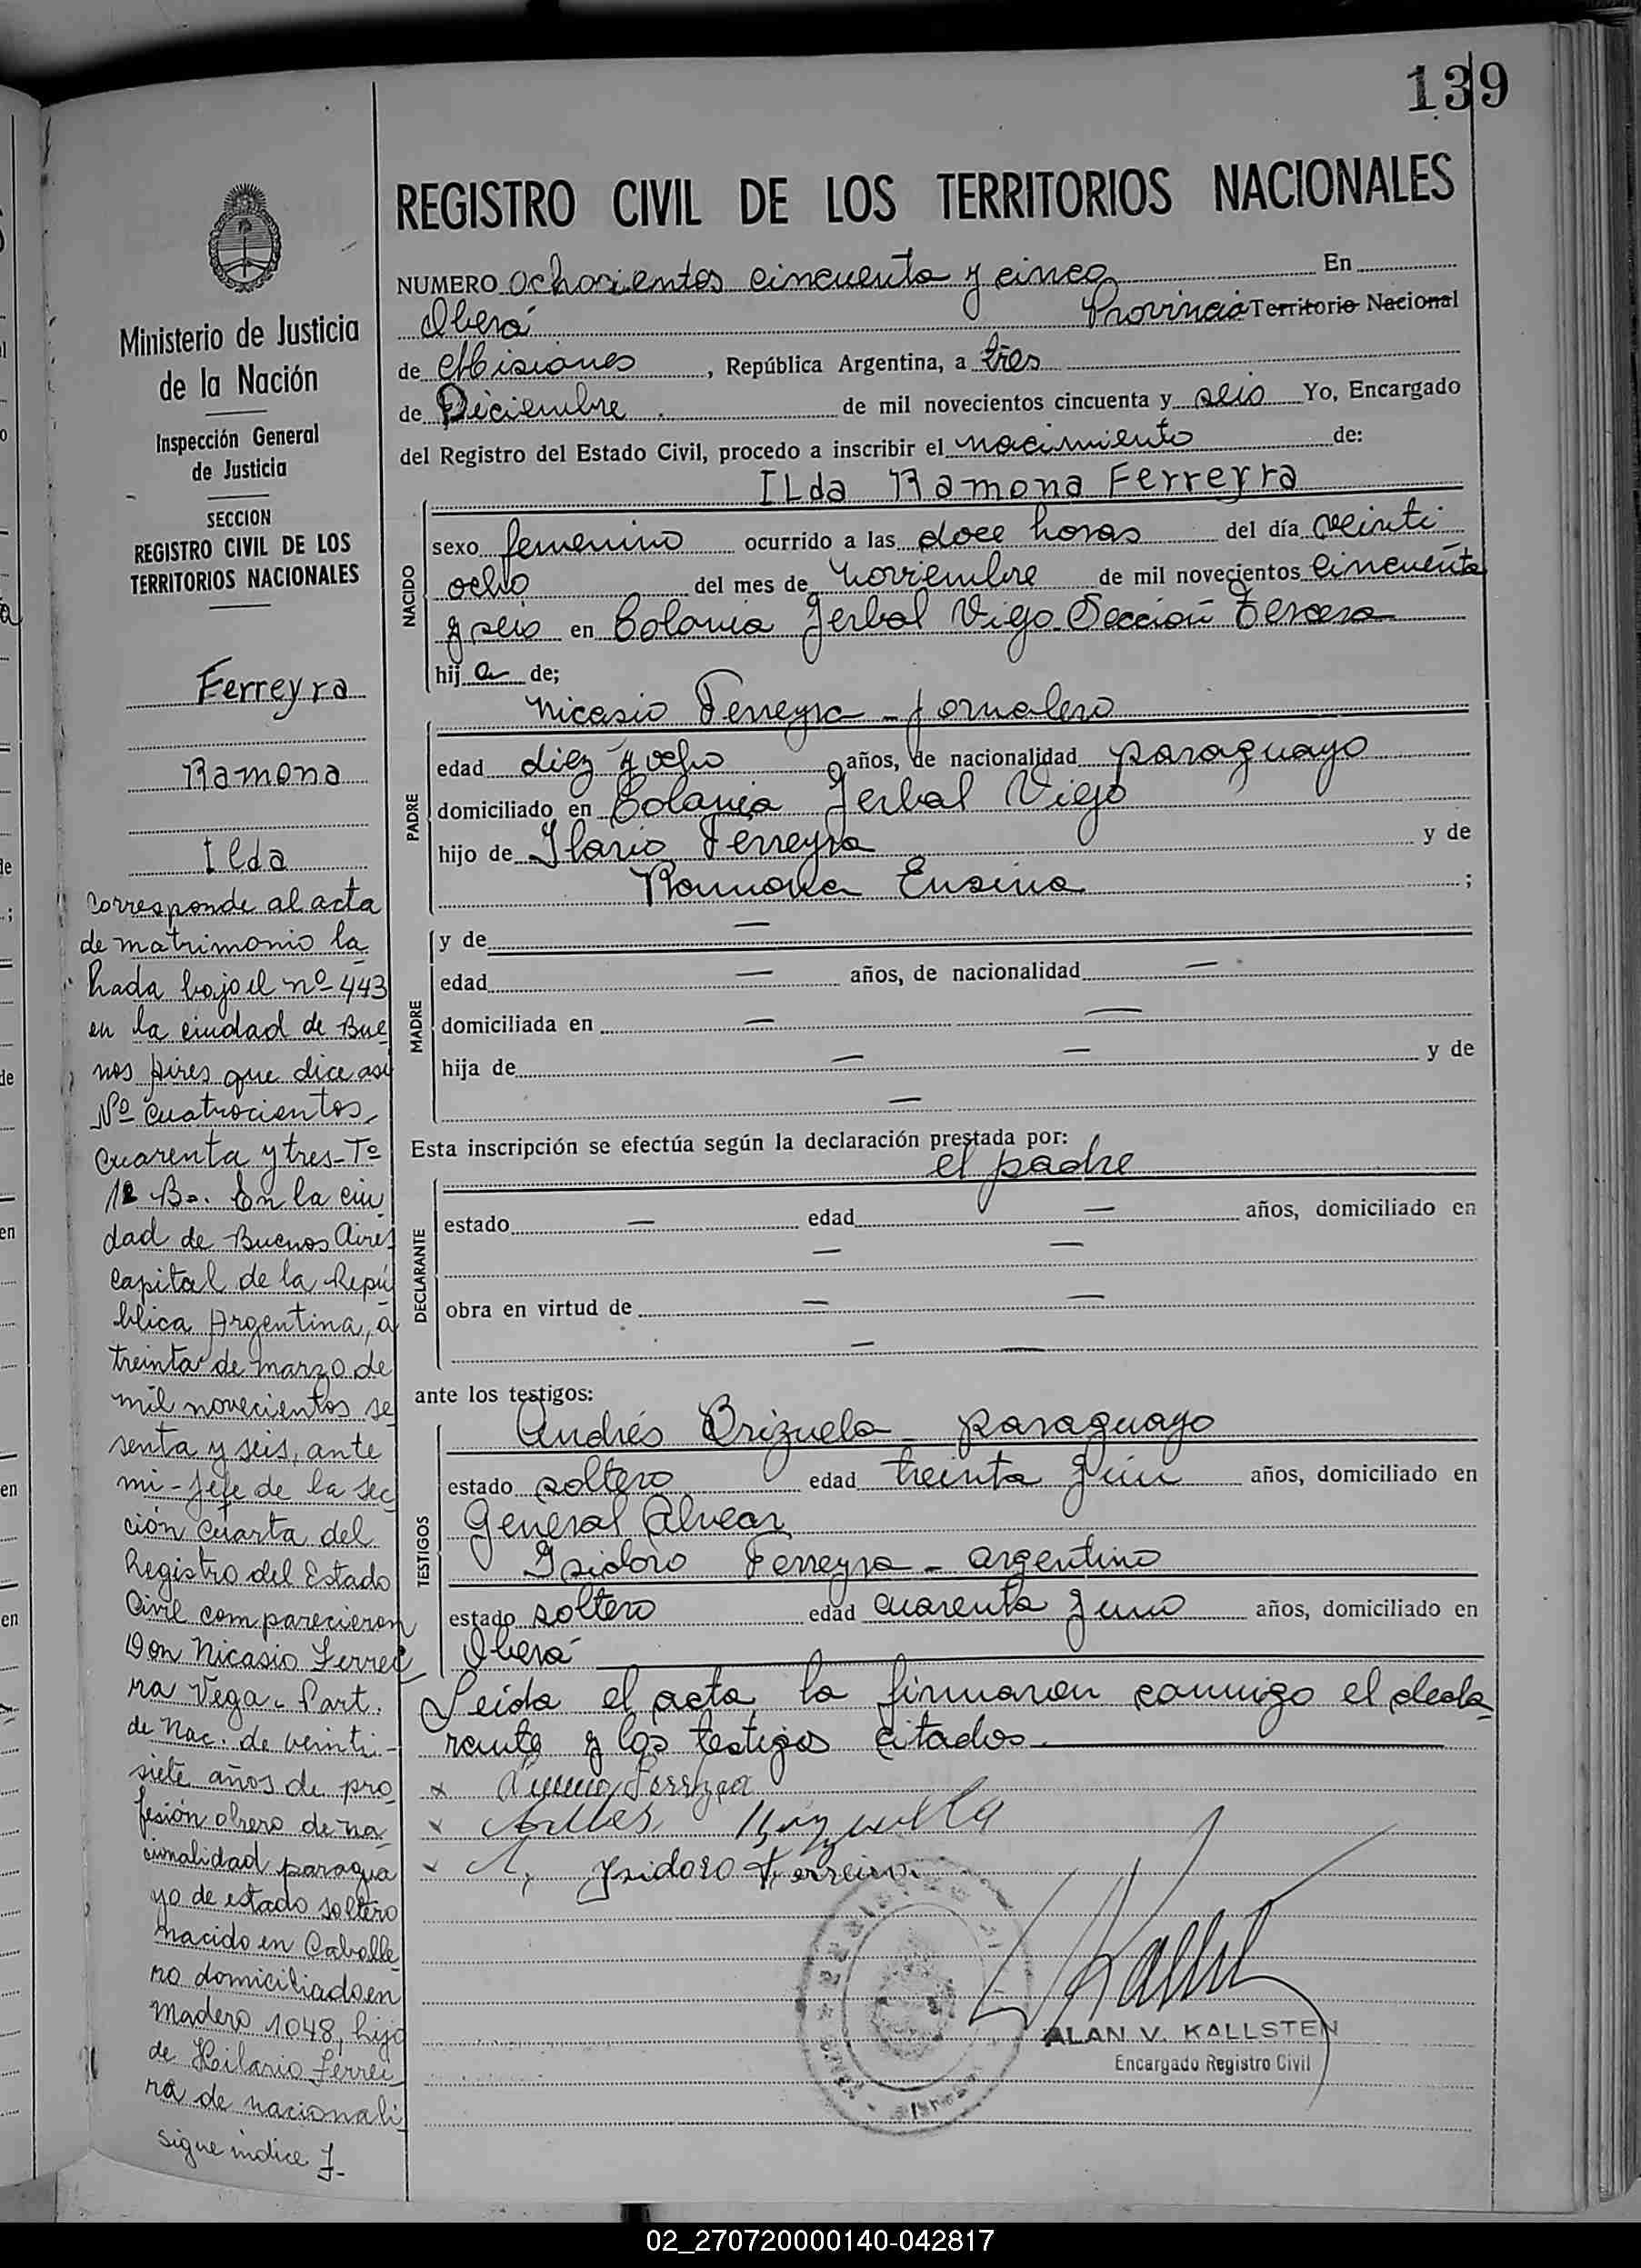 139
REGISTRO CIVIL DE LOS TERRITORIOS NACIONALES
NUMERO ochocientos cincuenta y cinco En
Oberá Provincia Territorio Nacional
de Misiones, República Argentina, a tres
de Diciembre de mil novecientos cincuenta y seis Yo, Encargado
del Registro del Estado Civil, procedo a inscribir el nacimiento de:
ILda Ramona Ferreyra
NACIDO
sexo femenino ocurrido a las doce horas del día veinti
ocho del mes de Noviembre de mil novecientos cincuenta
y seis en Colonia Yerbal Viejo Sección Tercera
hija de;
PADRE
Nicasio Ferreyra - jornalero
edad diez y ocho años, de nacionalidad paraguayo
domiciliado en Colonia Yerbal Viejo
hijo de Ilario Ferreyra y de
Ramona Ensina ;
MADRE
y de —
edad — años, de nacionalidad —
domiciliada en — —
hija de — — y de
—
Esta inscripción se efectúa según la declaración prestada por:
el padre
DECLARANTE
estado — edad — años, domiciliado en
— —
obra en virtud de — —
— —
ante los testigos:
TESTIGOS
Andrés Brizuela - paraguayo
estado soltero edad treinta y un años, domiciliado en
General Alvear
Isidoro Ferreyra - argentino
estado soltero edad cuarenta y uno años, domiciliado en
Oberá
Leida el acta, la firmaron conmigo el decla
rante y los testigos citados.
x
x
x Isidoro Ferreira
ALAN V. KALLSTEN
Encargado Registro Civil
Ministerio de Justicia
de la Nación
Inspección General
de Justicia
SECCION
REGISTRO CIVIL DE LOS
TERRITORIOS NACIONALES
Ferreyra
Ramona
Ilda
Corresponde al acta
de matrimonio la
brada bajo el nº 443
en la ciudad de Bue
nos Aires que dice así
Nº Cuatrocientos
Cuarenta y tres - Tº
1º Bº. En la ciu
dad de Buenos Aires
Capital de la Repú
blica Argentina, a
treinta de marzo de
mil novecientos se
senta y seis, ante
mi - Jefe de la Sec
ción Cuarta del
Registro del Estado
Civil comparecieron
Don Nicasio Ferrei
ra Vega - Part.
de Nac. de veinti-
siete años de pro
fesión obrero de na
cionalidad paragua
yo de estado soltero
nacido en Caballe
ro domiciliado en
Madero 1048, hijo
de Hilario Ferrei
ra de nacionali
sigue indice F-
02_270720000140-042817